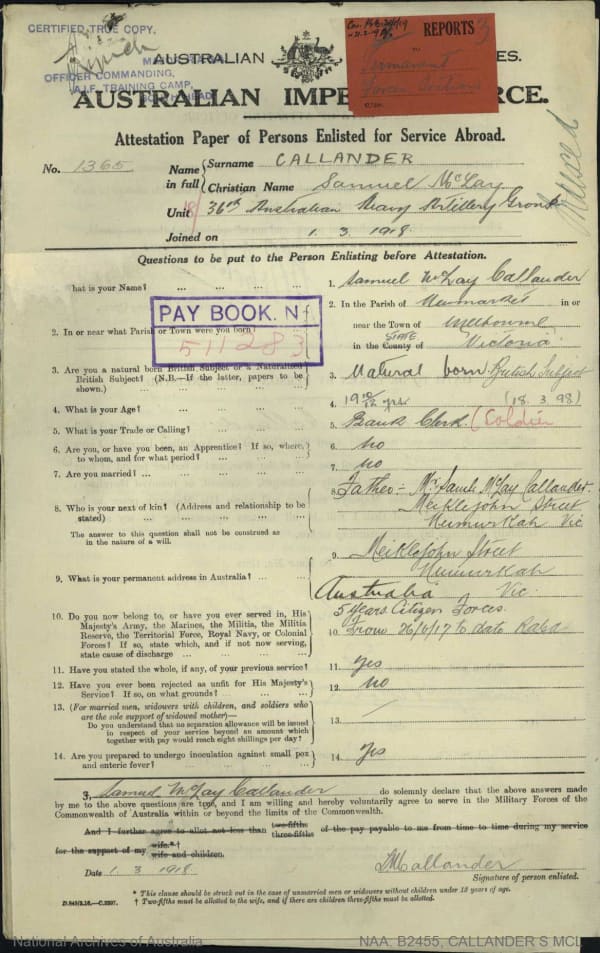 CERTIFIED TRUE COPY.
OFFICER COMMANDING,
A.I.F. TRAINING CAMP,
REPORTS
TO
Permanent
AUSTRALIAN
ES.
AUSTRALIAN IMPE RCE.
Attestation Paper of Persons Enlisted for Service Abroad.
No. 1365
Name in full
Surname CALLANDER
Christian Name Samuel McLay
Unit 36th Australian Heavy Artillery Group
Joined on 1. 3. 1918.
Questions to be put to the Person Enlisting before Attestation.
hat is your Name? ... ... ... ...
1. Samuel McLay Callander
PAY BOOK. No
511283
2. In or near what Parish or Town were you born?
2. In the Parish of Newmarket in or
near the Town of Melbourne
STATE
in the County of Victoria
3. Are you a natural born British Subject or a Naturalized
British Subject? (N.B.—If the latter, papers to be
shown.) ... ... ... ...
3. Natural born British Subject
4. What is your Age? ... ... ... ...
4. 19 yrs (18. 3. 98)
5. What is your Trade or Calling? ... ... ...
5. Bank Clerk (Soldier
6. Are you, or have you been, an Apprentice? If so, where,
to whom, and for what period? ... ... ...
6. no
7. Are you married? ... ... ... ... ...
7. no
8. Who is your next of kin? (Address and relationship to be
stated) ... ... ... ...
The answer to this question shall not be construed as
in the nature of a will.
8. Father:- Mr Saml. McLay Callander
Meiklejohn Street
Numurkah Vic
9. What is your permanent address in Australia? ... ...
9. Meiklejohn Street
Numurkah
Australia Vic.
10. Do you now belong to, or have you ever served in, His
Majesty's Army, the Marines, the Militia, the Militia
Reserve, the Territorial Force, Royal Navy, or Colonial
Forces? If so, state which, and if not now serving,
state cause of discharge ... ... ...
5 years Citizen Forces.
10 From 26/6/17 to date RAGA
11. Have you stated the whole, if any, of your previous service?
11. yes
12. Have you ever been rejected as unfit for His Majesty's
Service? If so, on what grounds? ... ... ...
12. no
13. (For married men, widowers with children, and soldiers who
are the sole support of widowed mother)—
Do you understand that no separation allowance will be issued
in respect of your service beyond an amount which
together with pay would reach eight shillings per day?
13. /
14. Are you prepared to undergo inoculation against small pox
and enteric fever? ... ... ... ...
14. Yes
I, Samuel McLay Callander do solemnly declare that the above answers made
by me to the above questions are true, and I am willing and hereby voluntarily agree to serve in the Military Forces of the
Commonwealth of Australia within or beyond the limits of the Commonwealth.
And I further agree to allot not less than two-fifths three-fifths of the pay payable to me from time to time during my service
for the support of my wife.*† wife and children.
Date 1. 3. 1918.
SMCallander
Signature of person enlisted.
* This clause should be struck out in the case of unmarried men or widowers without children under 18 years of age.
† Two-fifths must be allotted to the wife, and if there are children three-fifths must be allotted.
National Archives of Australia
NAA: B2455, CALLANDER S MCL